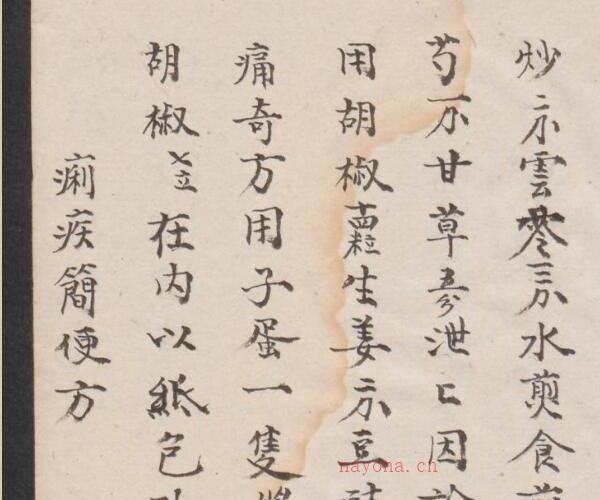 炒二ホ雲苓三ホ水煎食
芍一ホ甘草五分泄匕因
用胡椒十四粒生姜二ホ豆
痛奇方用子蛋一隻
胡椒七粒在内以紙包
痢疾簡便方
nayona.cn